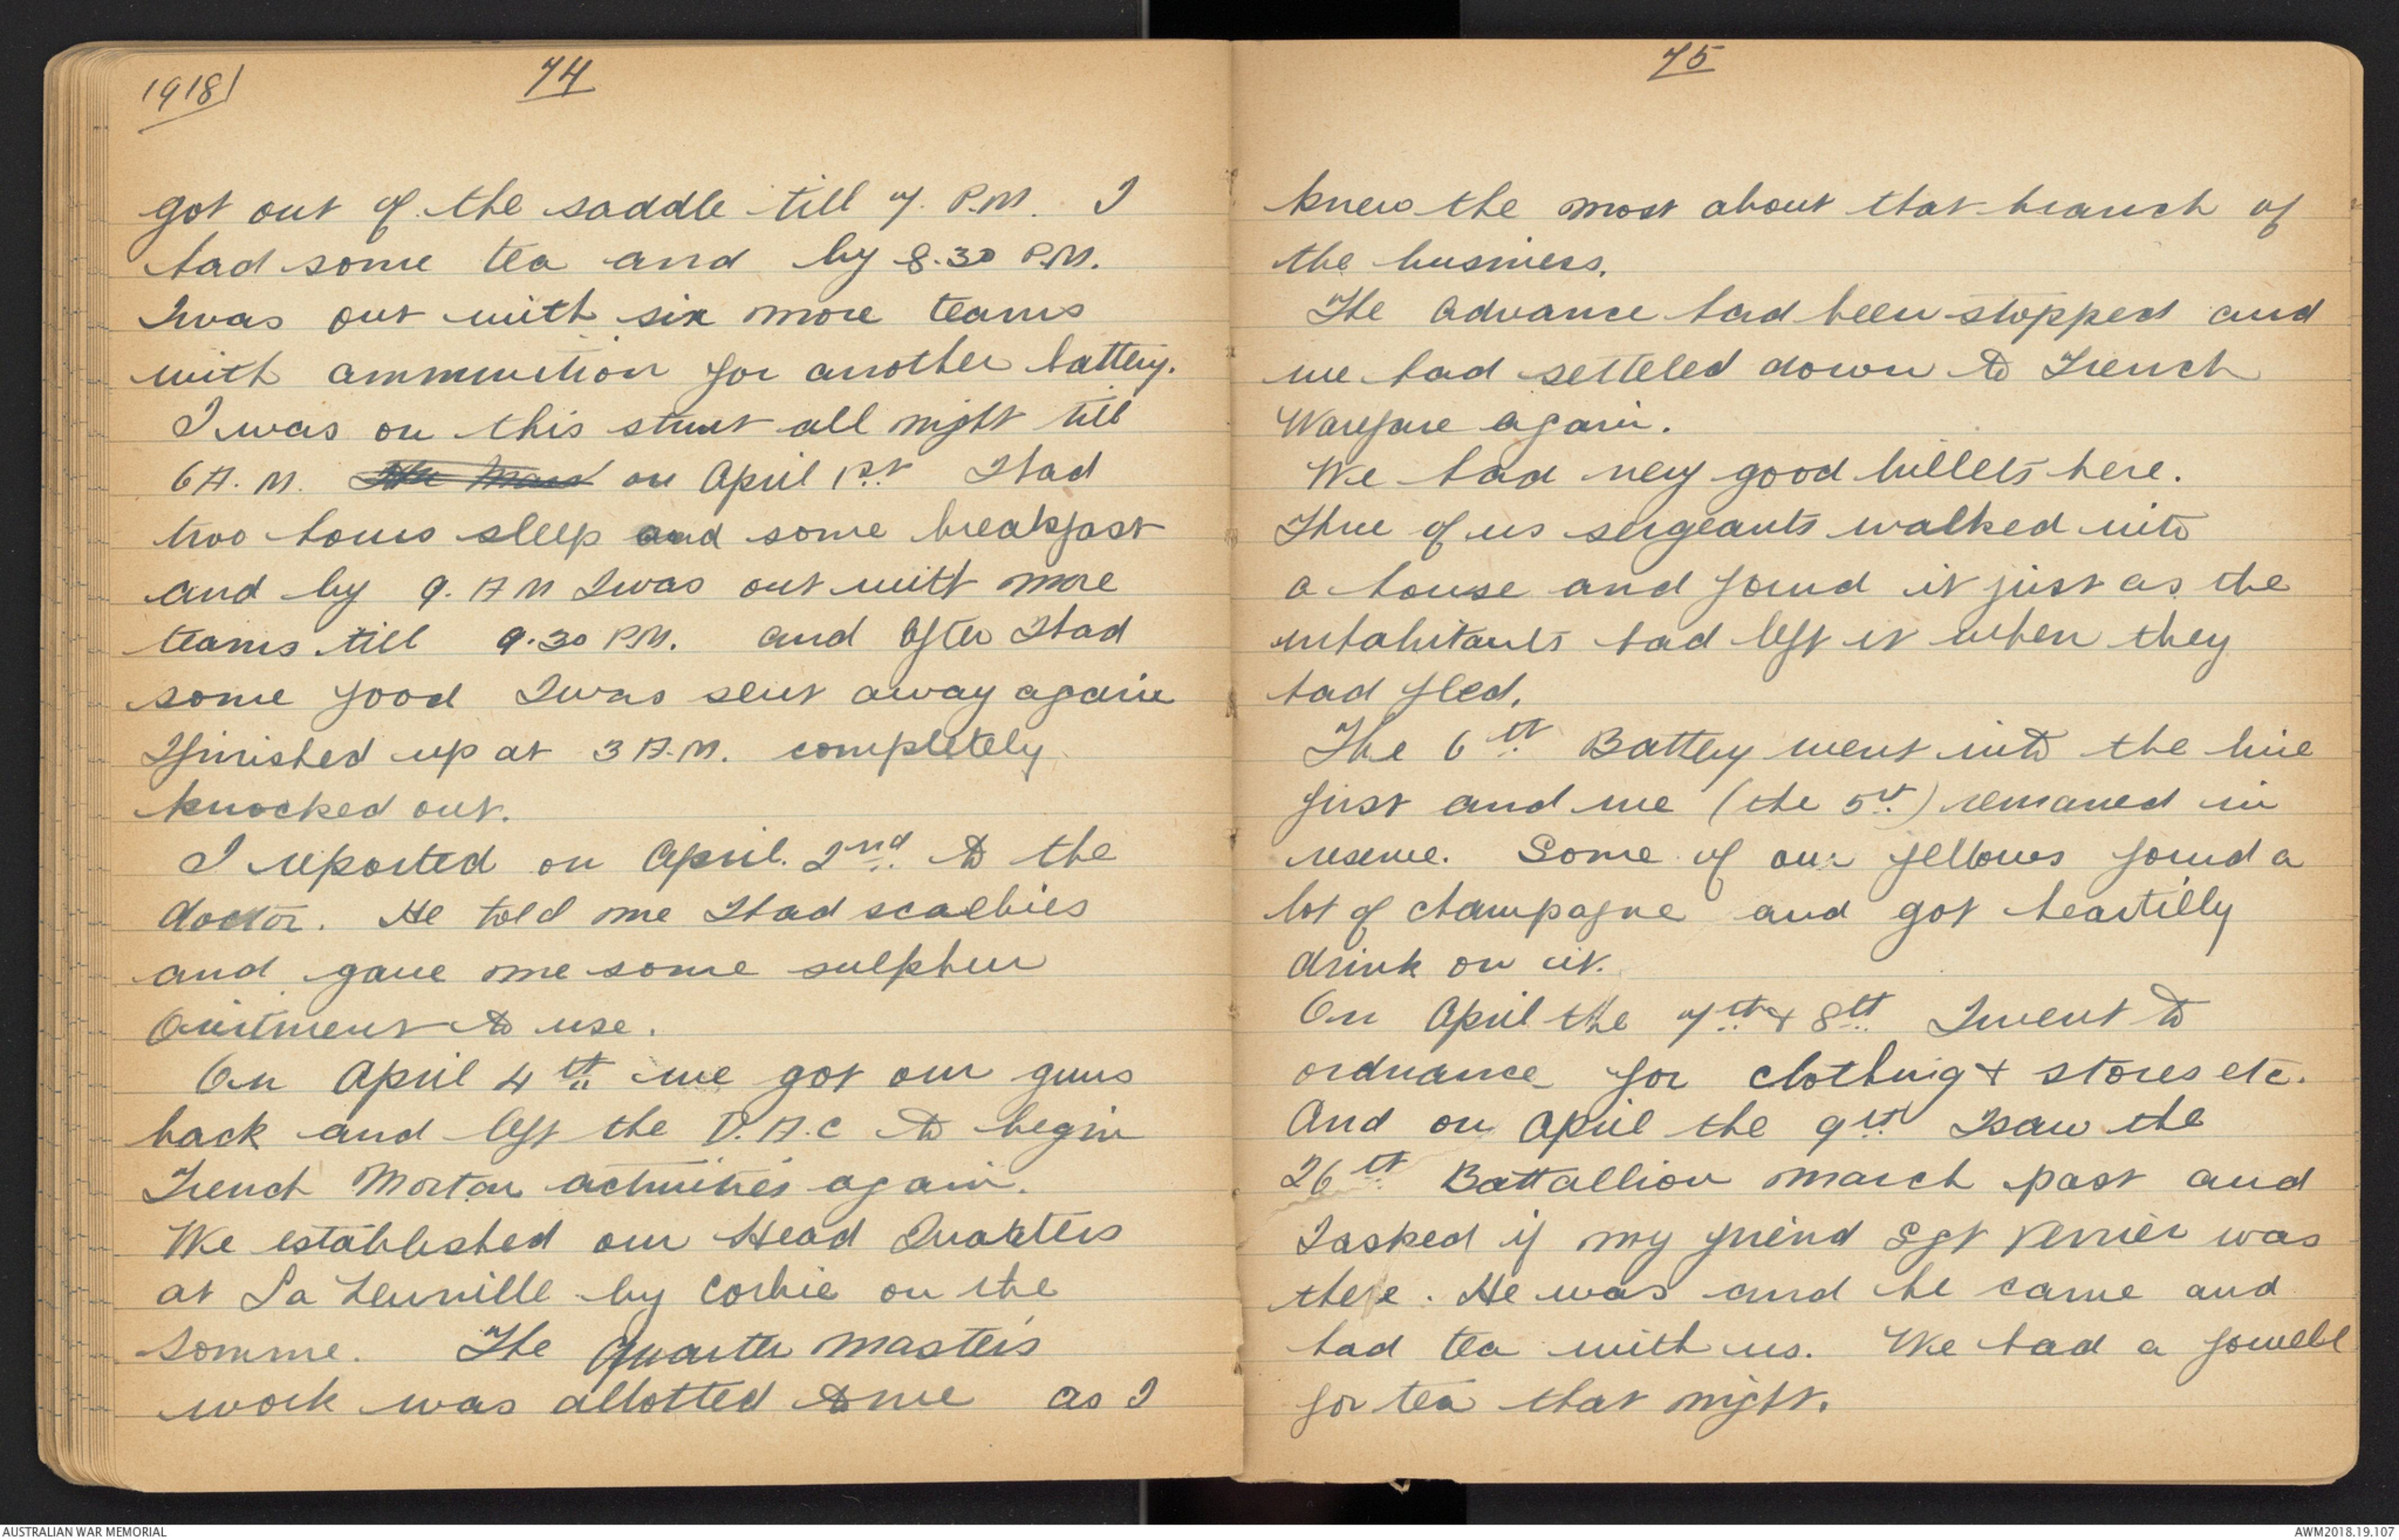 1918/
74
got out of the saddle till 7. P.M. I
had some tea and by 8.30 P.M.
I was out with six more teams
with ammunition for another battery.
I was on this stunt all night till
6 A.M. on April 1st. I had
two hours sleep and some breakfast
and by 9. A M I was out with more
teams till 9.30 P.M. and after I had
some food I was sent away again
I finished up at 3 A.M. completely
knocked out.
I reported on April. 2nd. to the
doctor. He told me I had scaebies
and gave me some sulpher
Ointment to use.
On April 4th we got our guns
back and left the D.A.C to begin
Trench Mortar activities again.
We established our Head Quarters
at La Neuville by Corbie on the
Somme. The Quarter Masters
work was allotted to me as I
75
knew the most about that branch of
the business.
The advance had been stopped and
we had setteled down to Trench
Warefare again.
We had very good billets here.
Three of us sergeants walked into
a house and found it just as the
inhabitants had left it when they
had fled.
The 6th. Battery went into the line
first and we (the 5th.) remaned in
reserve. Some of our fellows found a
lot of champagne and got heartilly
drunk on it.
On April the 7th & 8th I went to
ordnance for clothing & stores etc.
And on April the 9th I saw the
26th Battallion march past and
I asked if my friend Sgt Verrier was
there. He was and he came and
had tea with us. We had a fowell
for tea that night.
AUSTRALIAN WAR MEMORIAL
AWM2018.19.107